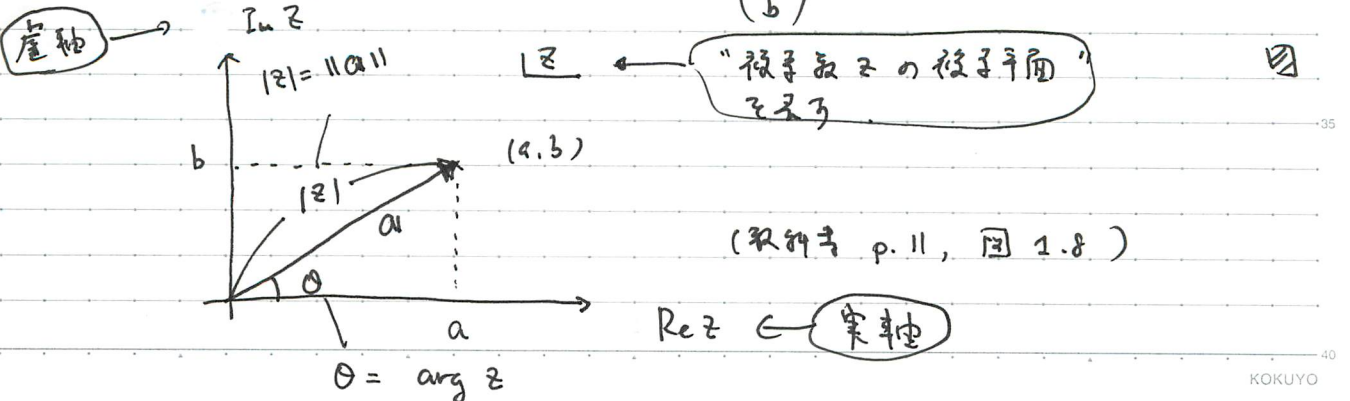 (b)
虚軸
Im z
|z| = ||𝕒||
z
"複素数 z の複素平面"
を表す
図
35
b
(a, b)
|z|
𝕒
(教科書 p.11, 図 1.8)
θ
a
Re z
実軸
θ = arg z
40
KOKUYO